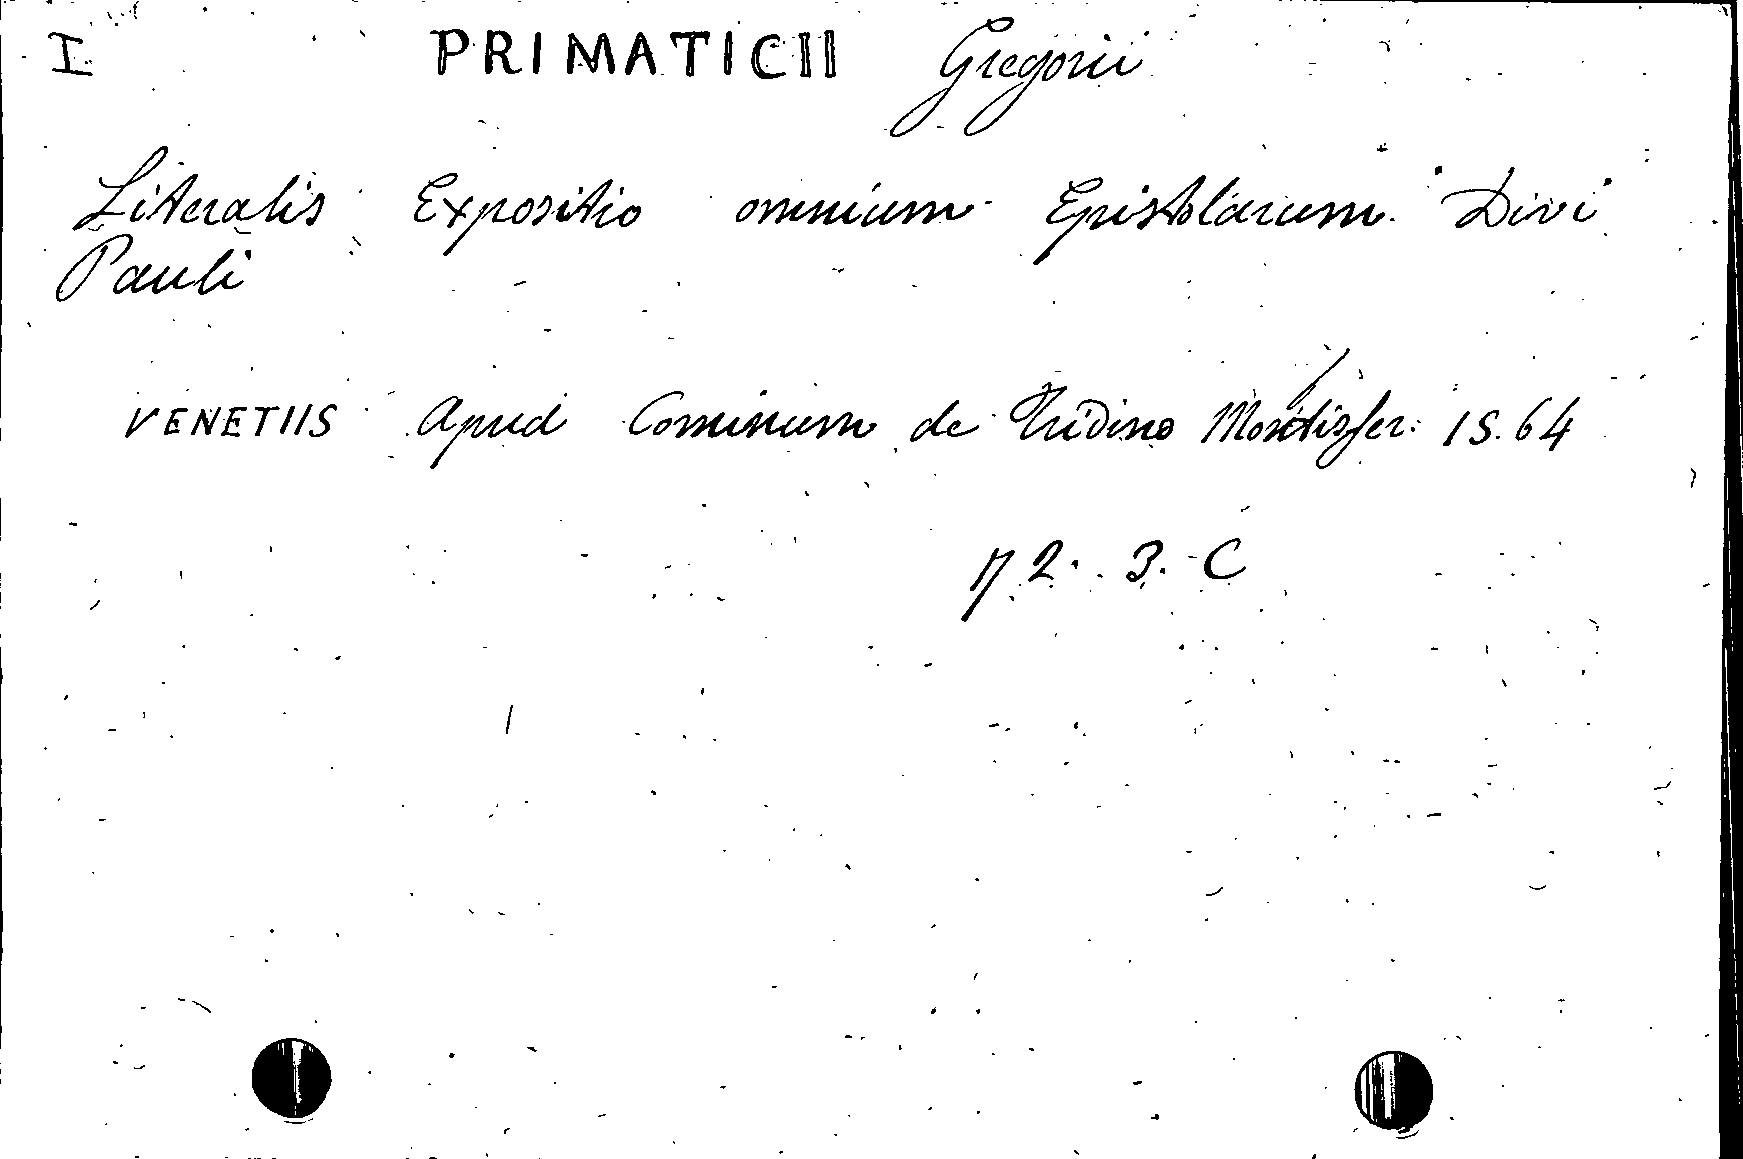 I PRIMATICII Gregorii
Literalis Expositio omnium Epistolarum Divi
Pauli
VENETIIS Apud Cominum de Tridino Montisfer: 15.64
n 2. 3. C